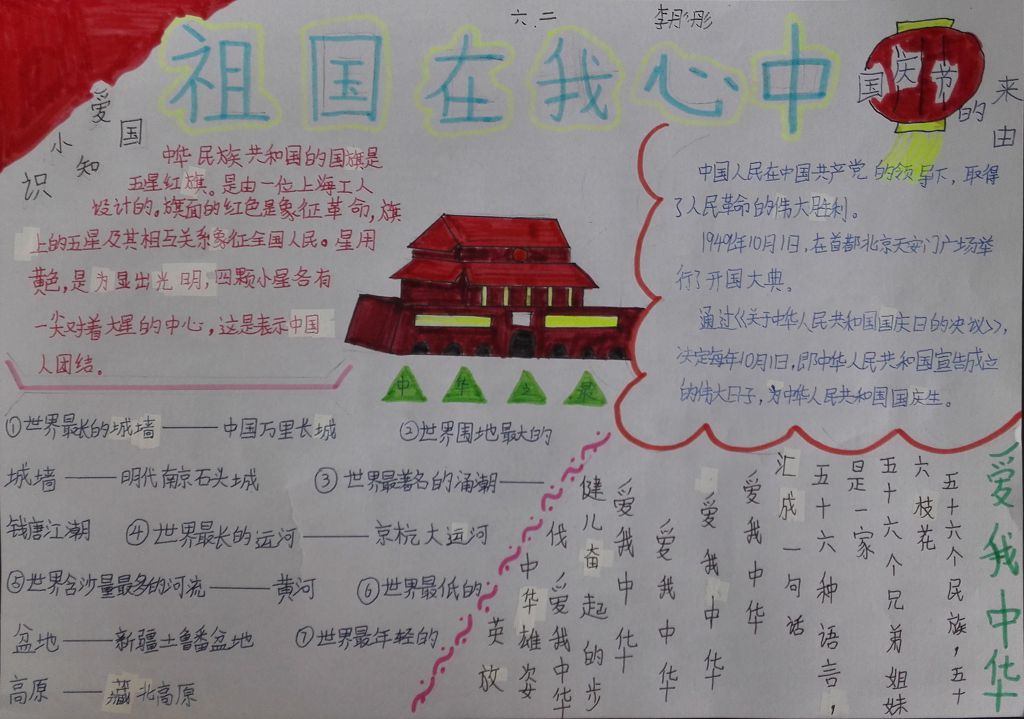 六、二
李彤彤
祖国在我心中
国庆节
的来由
爱国
小知识
中华民族共和国的国旗是
五星红旗。是由一位上海工人
设计的。旗面的红色是象征革命,旗
上的五星及其相互关系象征全国人民。星用
黄色,是为显出光明,四颗小星各有
一尖对着大星的中心,这是表示中国
人团结。
中国人民在中国共产党的领导下,取得
了人民革命的伟大胜利。
1949年10月1日,在首都北京天安门广场举
行了开国大典。
通过《关于中华人民共和国国庆日的决议》,
决定每年10月1日,即中华人民共和国宣告成立
的伟大日子,为中华人民共和国国庆生。
中华之最
①世界最长的城墙——中国万里长城
②世界围地最大的
城墙——明代南京石头城
③世界最著名的涌潮——
钱唐江潮
④世界最长的运河——京杭大运河
⑤世界含沙量最多的河流——黄河
⑥世界最低的
盆地——新疆土鲁番盆地
⑦世界最年轻的
高原——藏北高原
爱我中华
五十六个民族,五十
六枝花
五十六个兄弟姐妹
是一家
五十六种语言,
汇成一句话
爱我中华
爱我中华
爱我中华
爱我中华
健儿奋起的步
伐
爱我中华
中华雄姿
英放